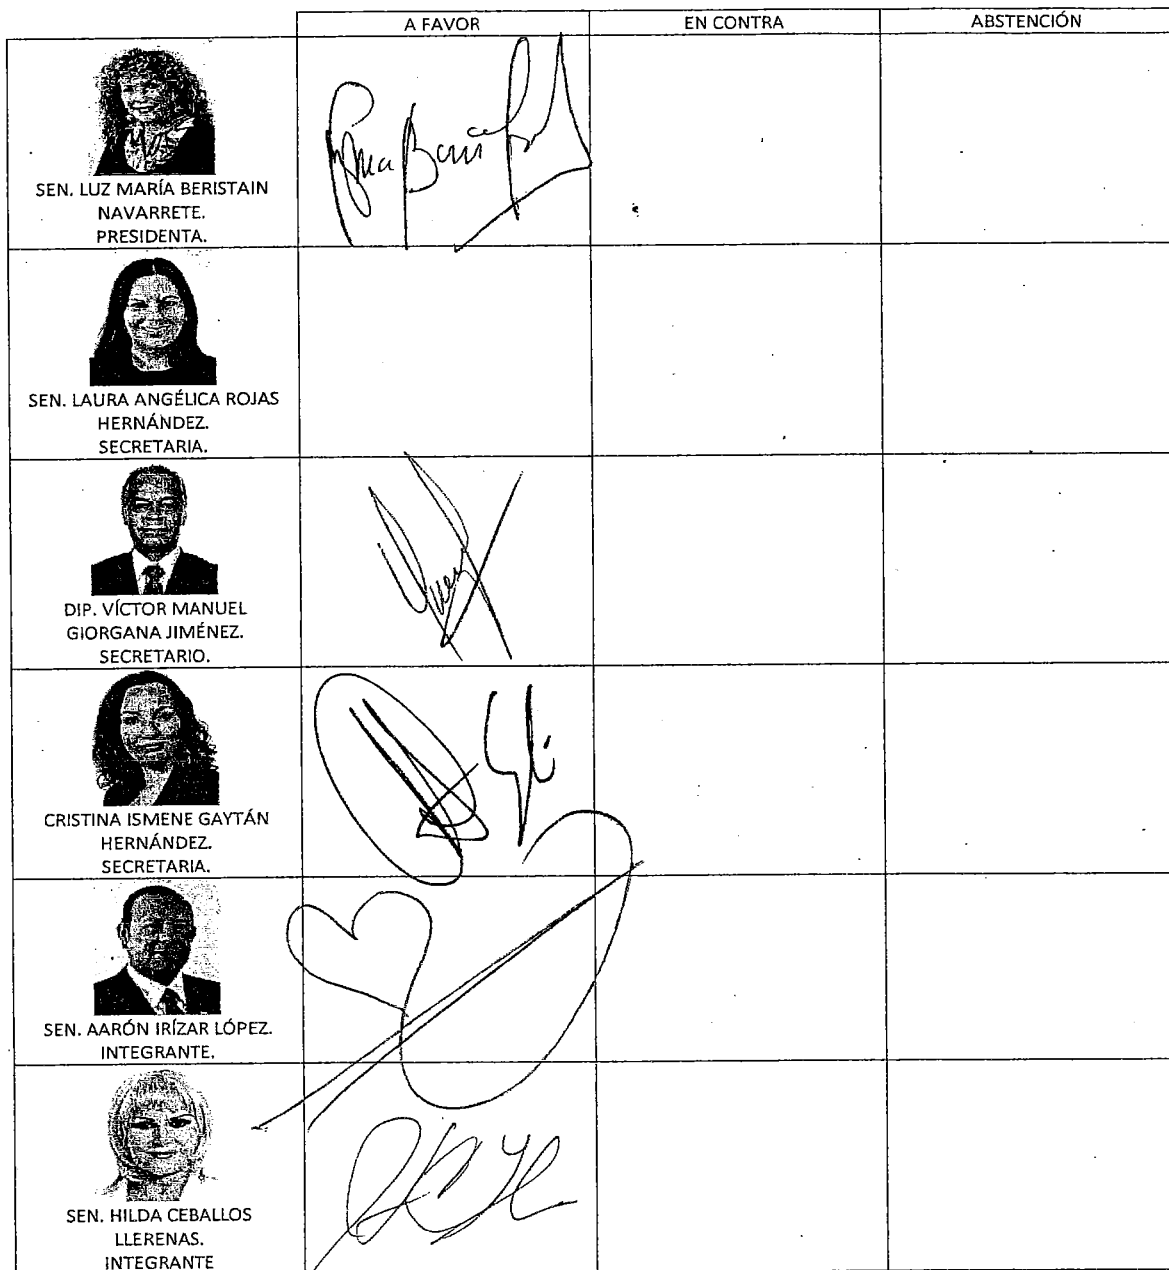 A FAVOR EN CONTRA ABSTENCIÓN
SEN. LUZ MARÍA BERISTAIN
NAVARRETE.
PRESIDENTA.
SEN. LAURA ANGÉLICA ROJAS
HERNÁNDEZ.
SECRETARIA.
DIP. VÍCTOR MANUEL
GIORGANA JIMÉNEZ.
SECRETARIO.
CRISTINA ISMENE GAYTÁN
HERNÁNDEZ.
SECRETARIA.
SEN. AARÓN IRÍZAR LÓPEZ.
INTEGRANTE.
SEN. HILDA CEBALLOS
LLERENAS.
INTEGRANTE